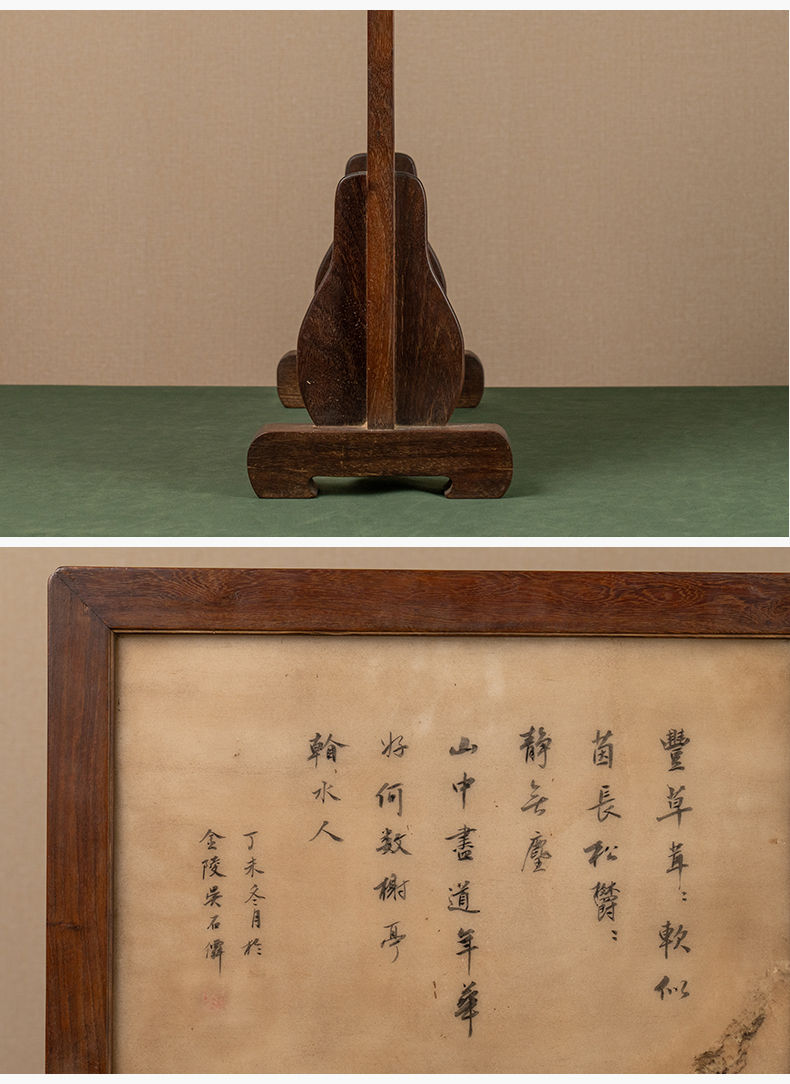 豐草茸:軟似
茵長松鬱:
靜無塵
山中盡道年華
好何数榭亭
翰水人
丁未冬月於
金陵吳石僊